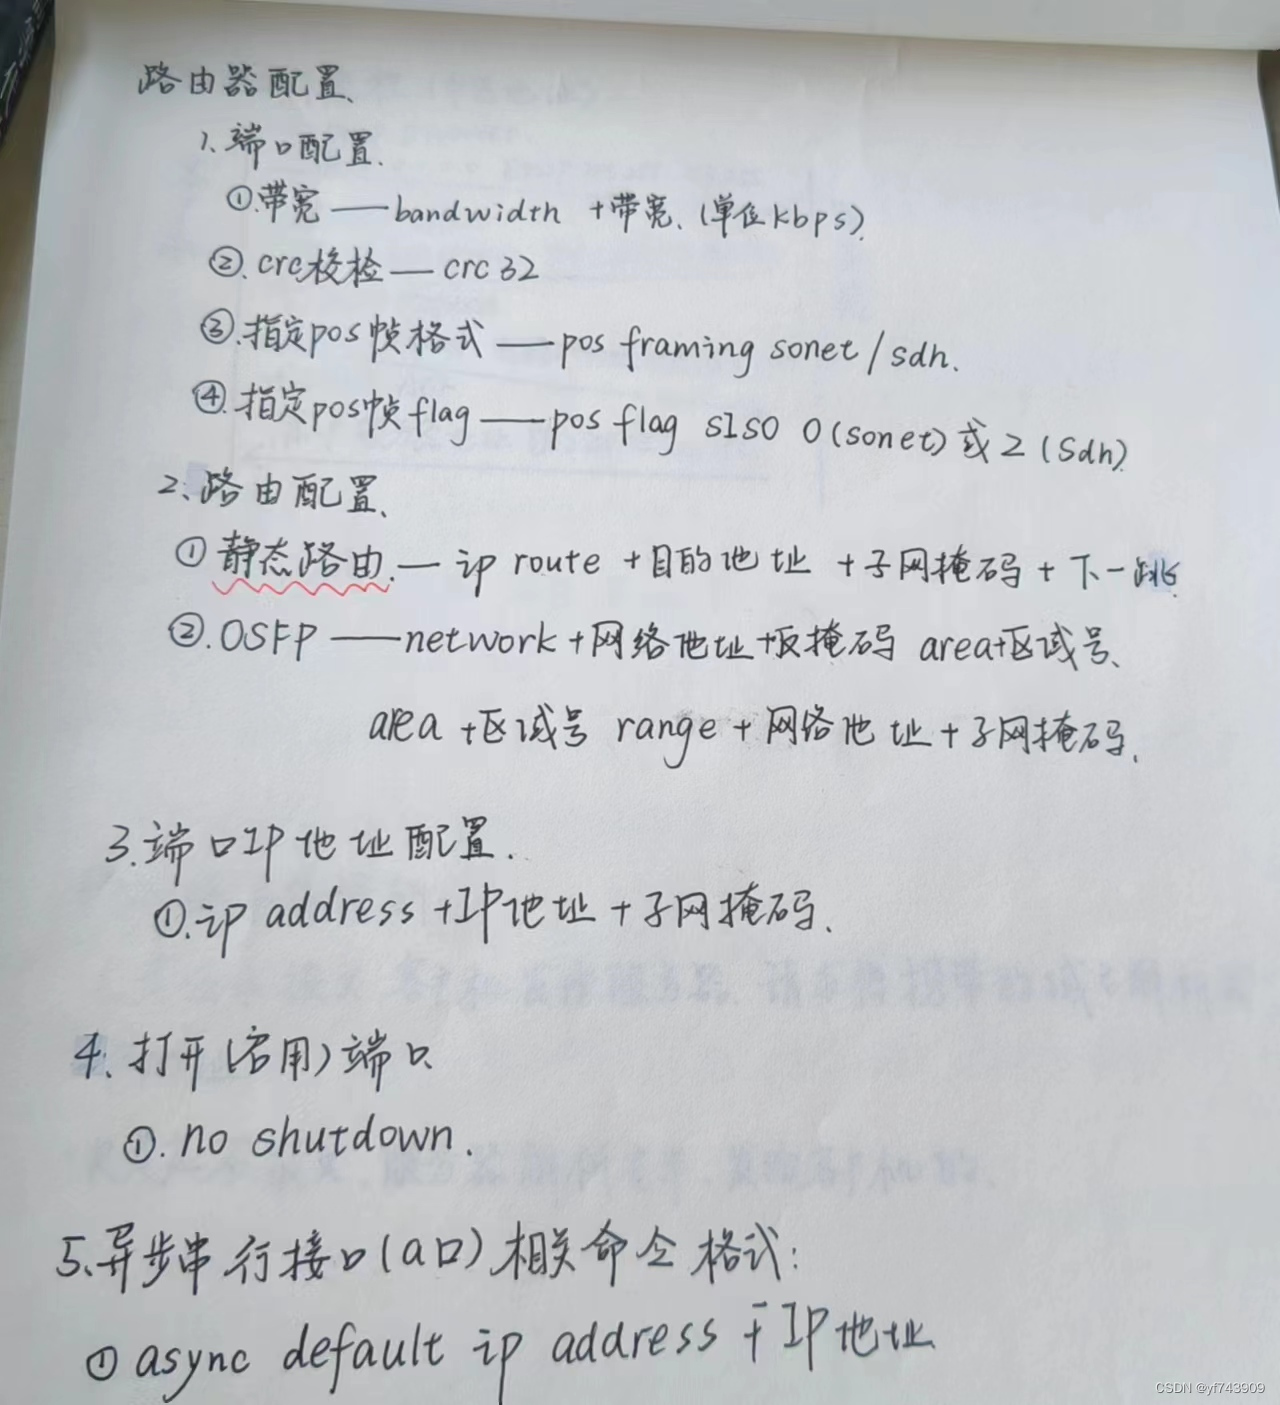 路由器配置、
1、端口配置.
①.带宽——bandwidth +带宽、(单位kbps).
②.crc校检——crc 32
③.指定pos帧格式——pos framing sonet/sdh.
④.指定pos帧flag——pos flag s1s0 0(sonet)或2(Sdh)
2、路由配置、
①静态路由.—ip route +目的地址 +子网掩码+下一跳
②.OSFP——network+网络地址+反掩码 area+区域号、
area +区域号 range+网络地址+子网掩码、
3.端口IP地址配置.
①.ip address +IP地址+子网掩码、
4.打开(启用)端口
①.no shutdown.
5.异步串行接口(a口)相关命令格式:
①async default ip address +IP地址
CSDN @yf743909